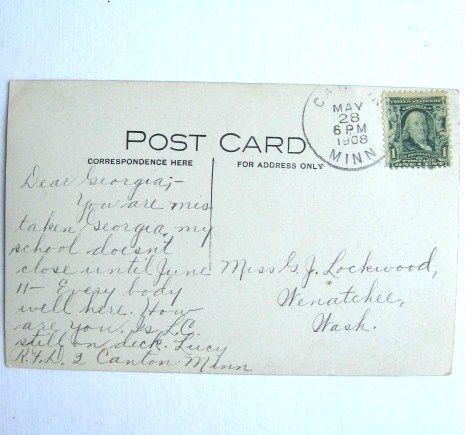 POST CARD
CORRESPONDENCE HERE
FOR ADDRESS ONLY
MAY
28
6 PM
1908
MINN
1
Dear Georgia;-
You are mis
taken Georgia, my
school doesn't
close until June
11- Every body
well here. How
are you. Is L.C.
still on deck. Lucy
R.F.D. 2 Canton Minn
Miss G. J. Lockwood,
Wenatchee,
Wash.